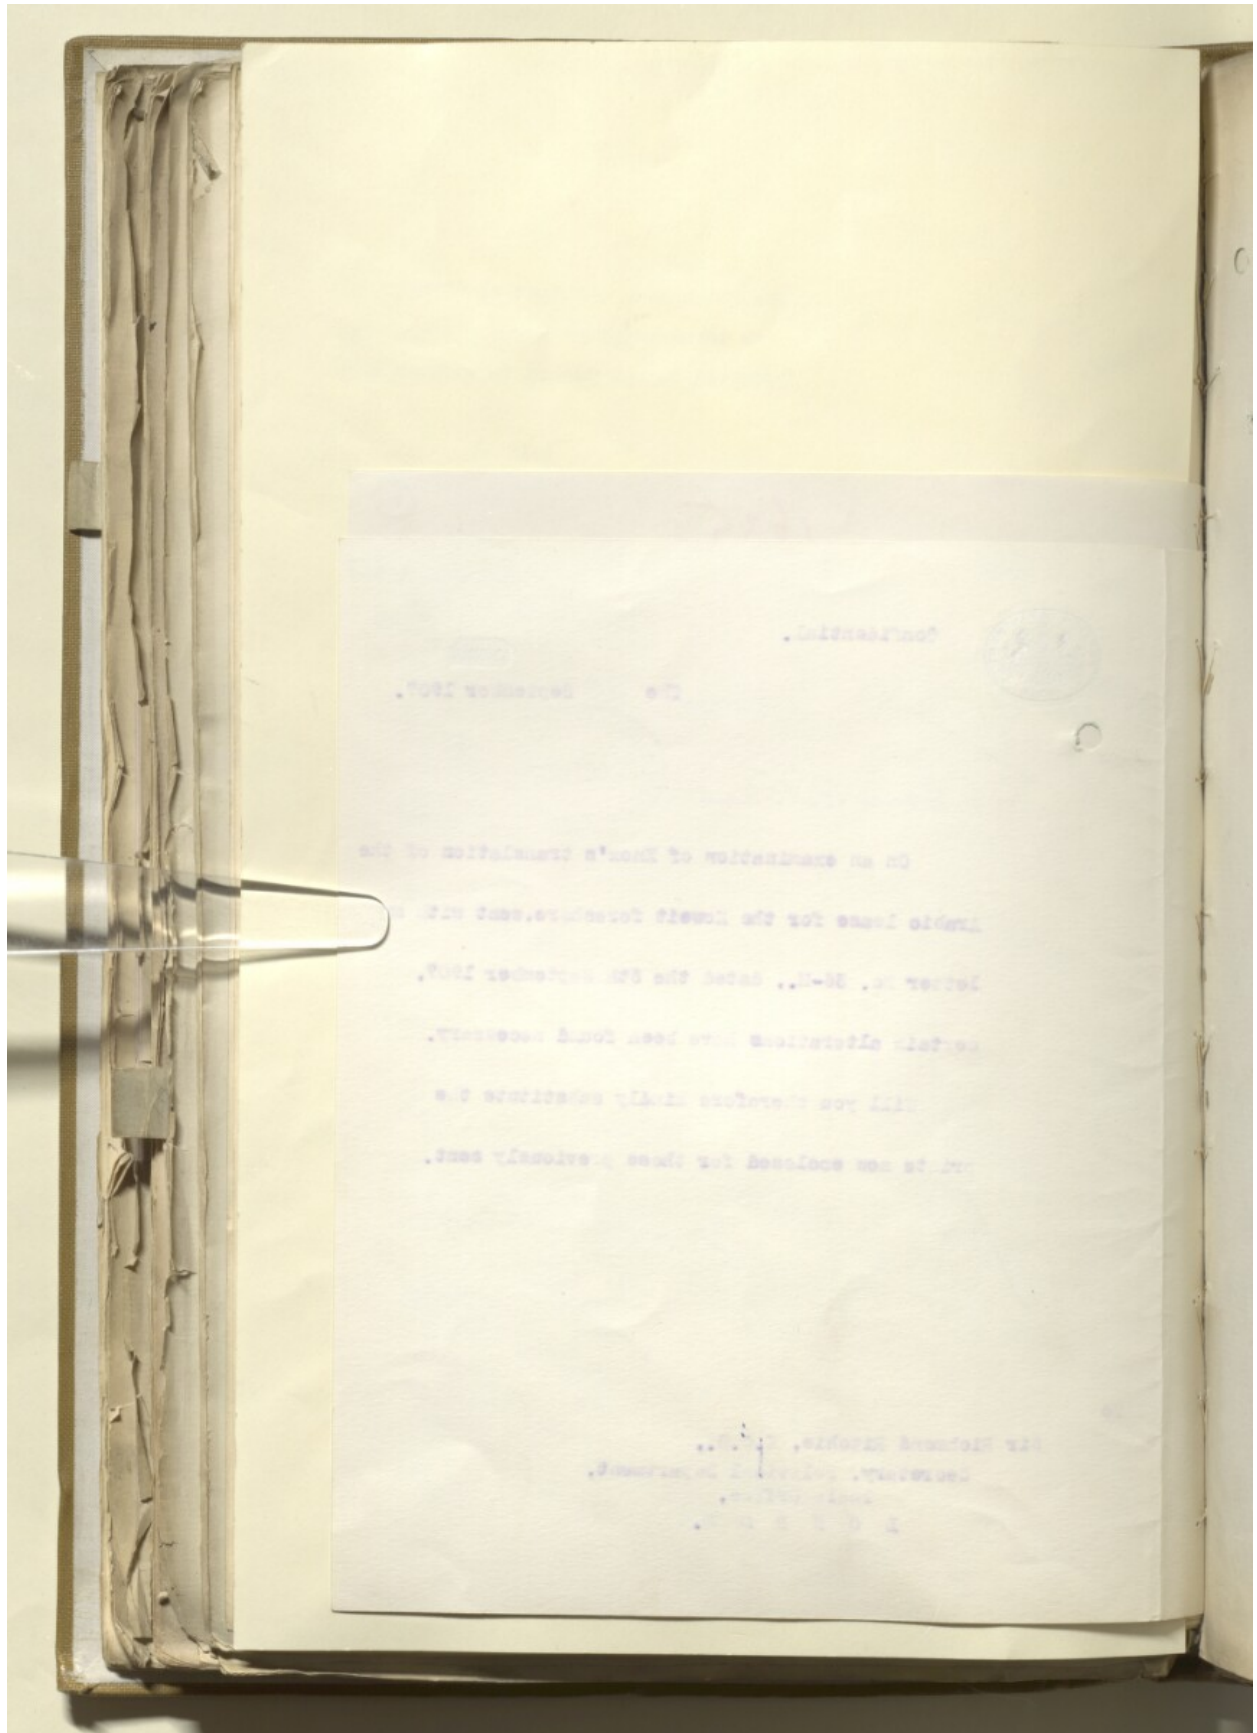 Confidential.
The September 1907.
On an examination of Knox's translation of the
Arabic lease for the Koweit foreshore, sent with
letter No. 36-M., dated the 5th September 1907,
certain alterations have been found necessary.
Will you therefore kindly substitute the
prints now enclosed for those previously sent.
Sir Richmond Ritchie, K.C.B.,
Secretary, Political Department,
India Office,
L O N D O N.